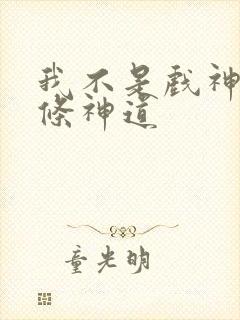 我不是戲神
條神道
童光明